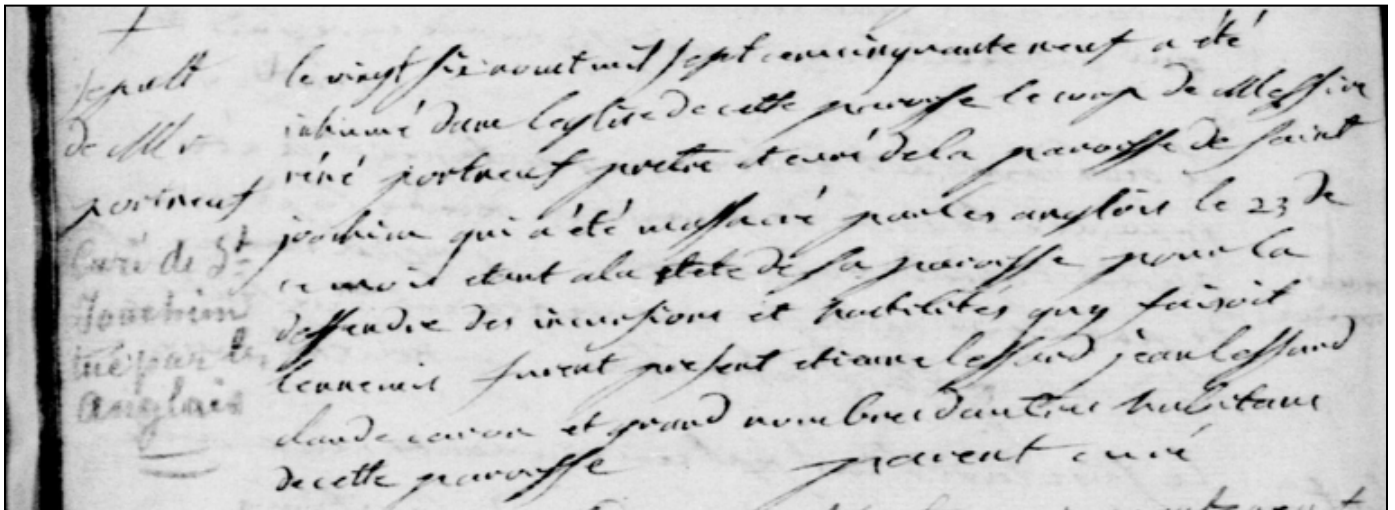 sepult
de Mr
portneuf
Curé de St
Joachim
tué par les
Anglais
le vingt six aoust mil sept cent cinquante neuf a été
inhumé dans leglise de cette paroisse le corps de Messire
réné portneuf pretre et curé de la paroisse de saint
joachim qui a été massacré par les anglois le 23 de
ce mois etant a la tete de sa paroisse pour la
deffendre des incursions et hostilités quy faisoit
lennemis furent present etienne lessard jean lessard
claude caron et grand nombres dautres habitans
de cette paroisse parent curé